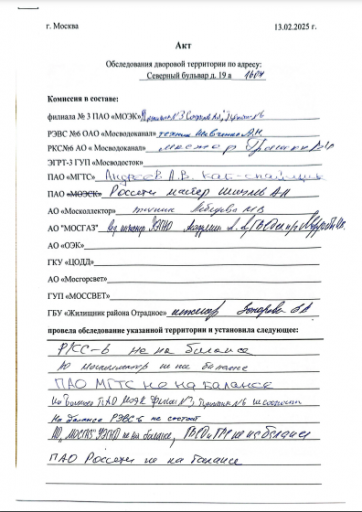 г. Москва 13.02.2025 г.
Акт
Обследования дворовой территории по адресу:
Северный бульвар д. 19 а 1604
Комиссия в составе:
филиала № 3 ПАО «МОЭК»
РЭВС №6 ОАО «Мосводоканал» техник
РКС№6 АО « Мосводоканал» мастер
ЭГРТ-3 ГУП «Мосводосток»
ПАО «МГТС» Андреев А.В. каб-спайщик
ПАО «МОЭСК» Россети мастер Шмулев А.Н
АО «Москоллектор» техник Лебедева
АО "МОСГАЗ"
АО «ОЭК»
ГКУ «ЦОДД»
АО «Мосгорсвет»
ГУП «МОССВЕТ»
ГБУ «Жилищник района Отрадное» инженер
провела обследование указанной территории и установила следующее:
РКС-6 не на балансе
АО Москоллектор не на балансе
ПАО МГТС не на балансе
На балансе ПАО МОЭК филиал №3, не состоит
На балансе РЭВС-6 не состоит
АО "МОСГАЗ" не на балансе, не на балансе
ПАО Россети не на балансе